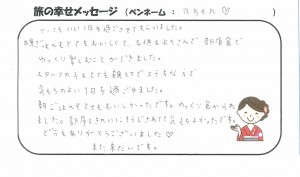 旅の幸せメッセージ（ペンネーム： ちゃん♡）
とってもいい1日を過ごさせてもらいました。
晩ごはんもとてもおいしくて、子供もよろこんで 部屋食で
ゆっくり楽しむことができました。
スタッフの方もとても親切で
気もちのよい1日を過ごせました。
朝ごはんもとてもおいしかったです。ゆっくり食べられ
ました。部屋もきれいにそうじされてて気もちよかったです。
どうもありがとうございました♡
また来たいです。